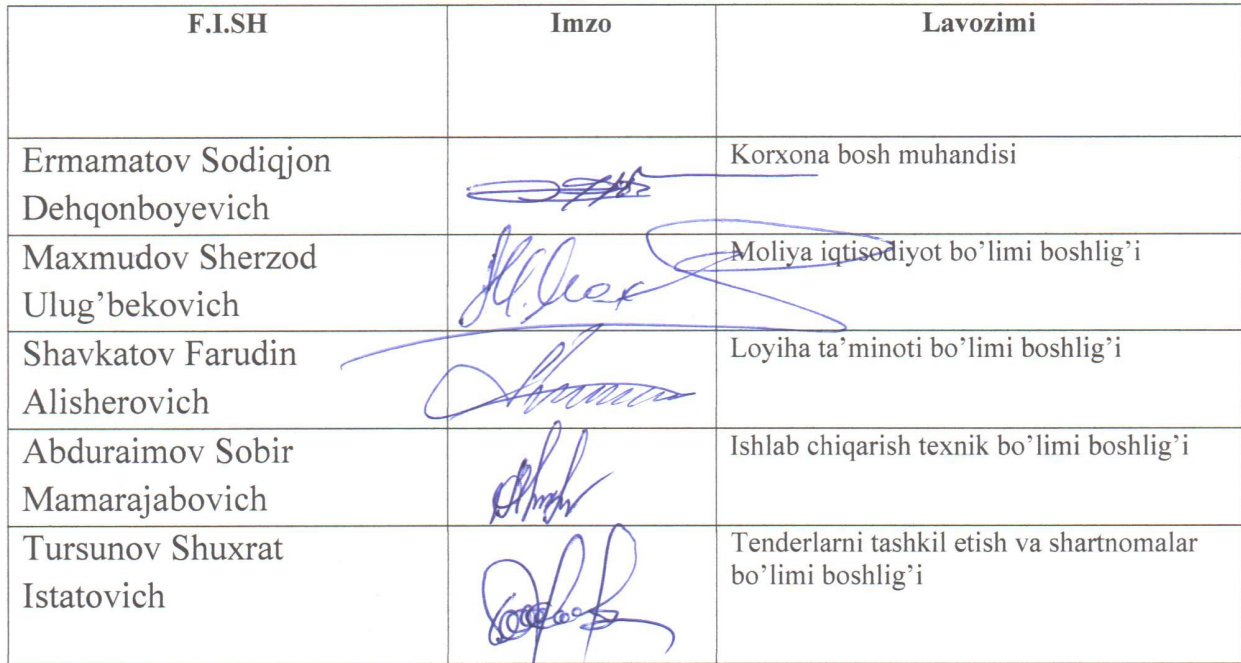 F.I.SH Imzo Lavozimi
Ermamatov Sodiqjon
Dehqonboyevich
Korxona bosh muhandisi
Maxmudov Sherzod
Ulug’bekovich
Moliya iqtisodiyot bo’limi boshlig’i
Shavkatov Farudin
Alisherovich
Loyiha ta’minoti bo’limi boshlig’i
Abduraimov Sobir
Mamarajabovich
Ishlab chiqarish texnik bo’limi boshlig’i
Tursunov Shuxrat
Istatovich
Tenderlarni tashkil etish va shartnomalar
bo’limi boshlig’i